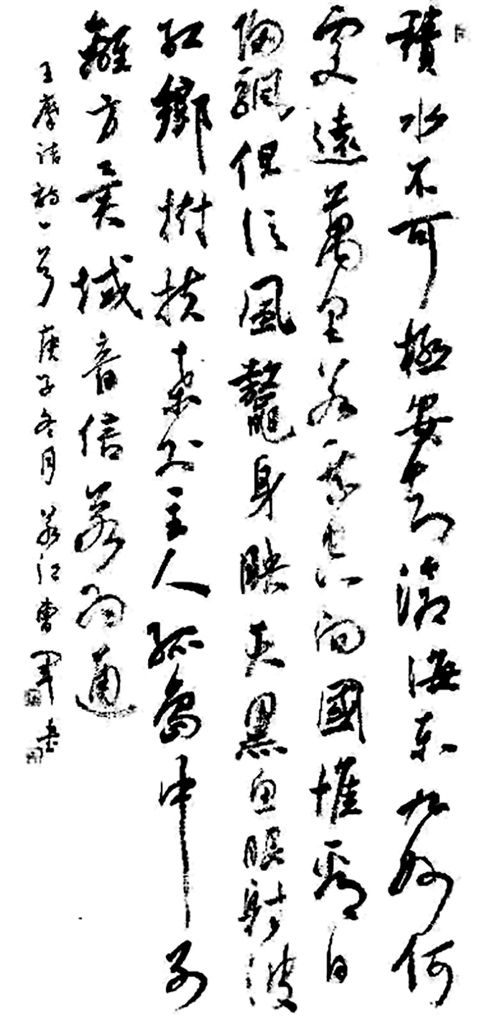 積水不可極安知滄海東九州何
處遠萬里若乘空向國惟看日
歸颿但信風鰲身映天黑魚眼射波
紅鄉樹扶桑外主人孤島中別
離方異域音信若為通
王摩詰詩一首庚子冬月若江曹軍書